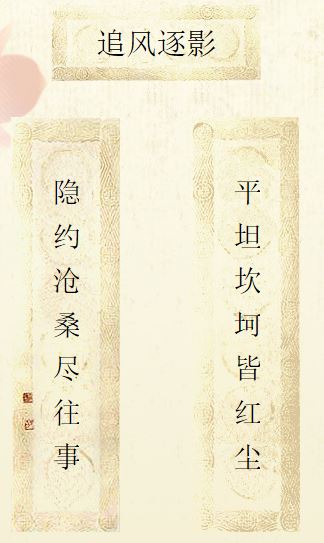 追风逐影
平坦坎坷皆红尘
隐约沧桑尽往事